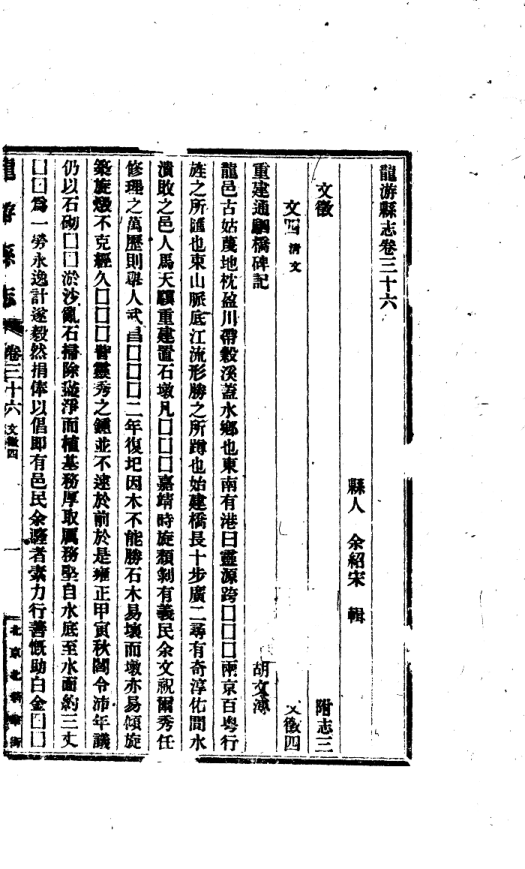 龍游縣志卷三十六
縣人 余紹宋 輯
文徵 附志三
文四 清文 文徵四
重建通駟橋碑記 胡文溥
龍邑古姑蔑地枕盈川帶縠溪蓋水鄉也東南有港曰靈源跨囗囗囗兩京百粵行
旌之所匯也東山脈底江流形勝之所蹲也始建橋長十步廣二尋有奇淳佑間水
潰敗之邑人馬天驥重建置石墩凡囗囗囗嘉靖時旋頹剝有義民余文祝爾秀任
修理之萬歷則舉人武昌囗囗囗二年復圯因木不能勝石木易壞而墩亦易傾旋
築旋燬不克經久囗囗囗嘗靈秀之鍾並不逮於前於是雍正甲寅秋閩令沛年議
仍以石砌囗囗淤沙亂石掃除瑩淨而植基務厚取厲務堅自水底至水面約三丈
囗囗為一勞永逸計遂毅然捐俸以倡即有邑民余瀍者素力行善慨助白金囗囗
龍游縣志 卷三十六 文徵四 一 北京北新華街